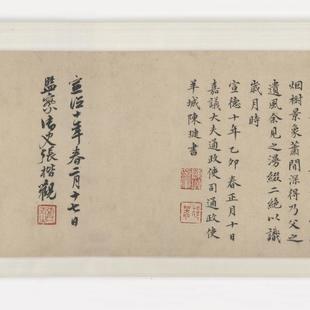 烟樹景象蕭間深得乃父之
遺風余見之漫綴二絕以識
歲月時
宣德十年乙卯春正月十日
嘉議大夫通政使司通政使
羊城陳璉書
宣德十年春二月十七日
監察御史張楷觀